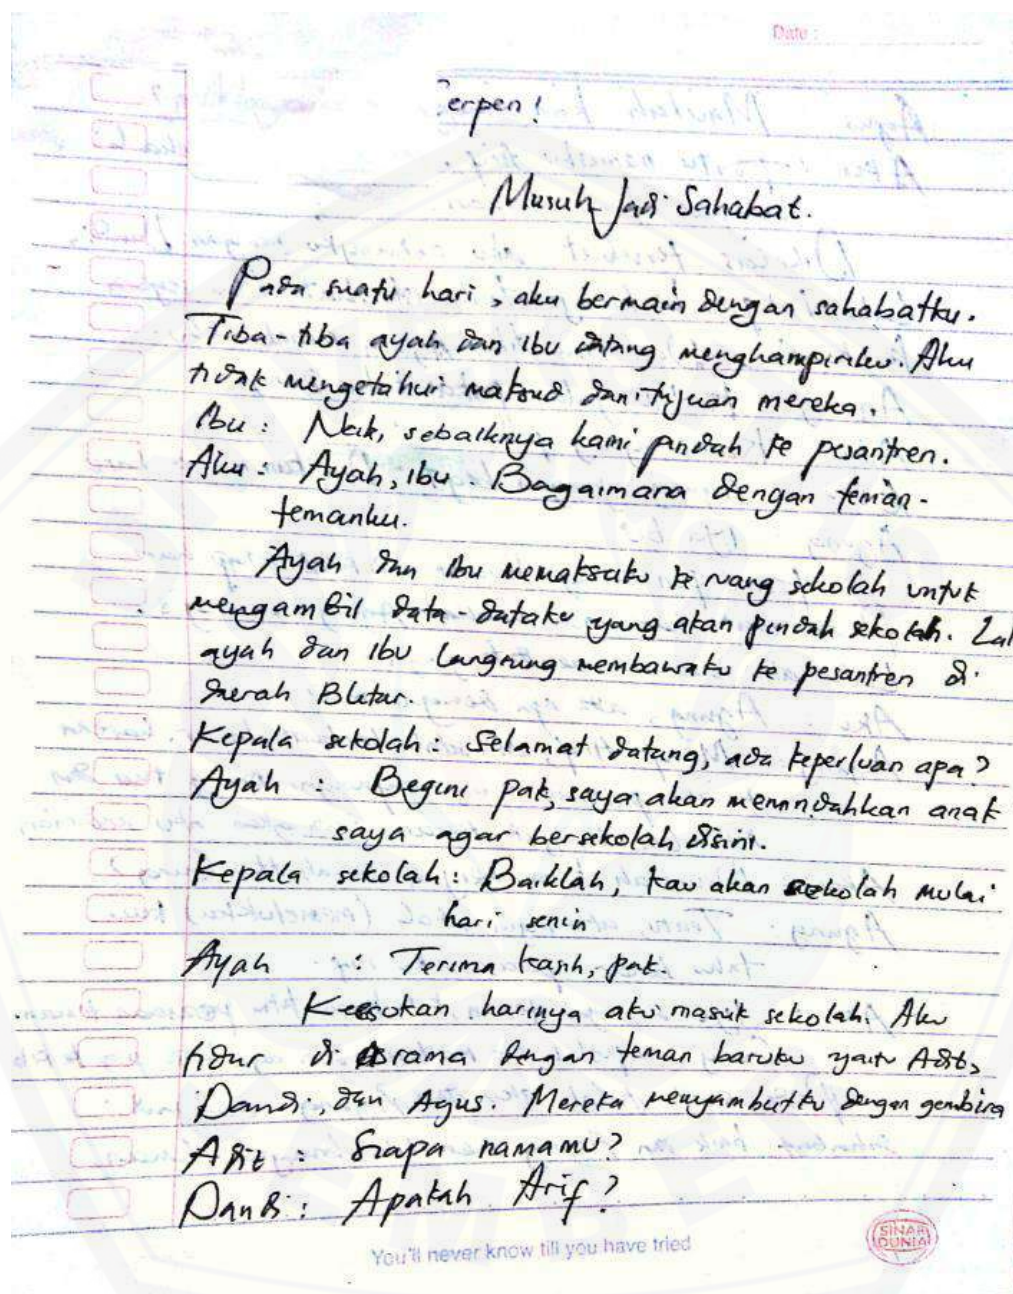 Date :
Cerpen !
Musuh Jadi Sahabat.
Pada suatu hari, aku bermain dengan sahabatku.
Tiba-tiba ayah dan Ibu datang menghampiriku. Aku
tidak mengetahui maksud dan tujuan mereka.
Ibu : Nak, sebaiknya kami pindah ke pesantren.
Aku : Ayah, Ibu. Bagaimana dengan teman-
temanku.
Ayah dan Ibu memaksaku ke ruang sekolah untuk
mengambil data-dataku yang akan pindah sekolah. Lal
ayah dan Ibu langsung membawaku ke pesantren di
daerah Blitar.
Kepala sekolah : Selamat datang, ada keperluan apa?
Ayah : Begini pak, saya akan memindahkan anak
saya agar bersekolah disini.
Kepala sekolah : Baiklah, kau akan sekolah mulai
hari senin
Ayah : Terima kasih, pak.
Keesokan harinya aku masuk sekolah. Aku
tidur di asrama dengan teman baruku yaitu Adit,
Dandi, dan Agus. Mereka menyambutku dengan gembira
Adit : Siapa namamu?
Dandi : Apakah Arif?
You'll never know till you have tried
SINAR DUNIA